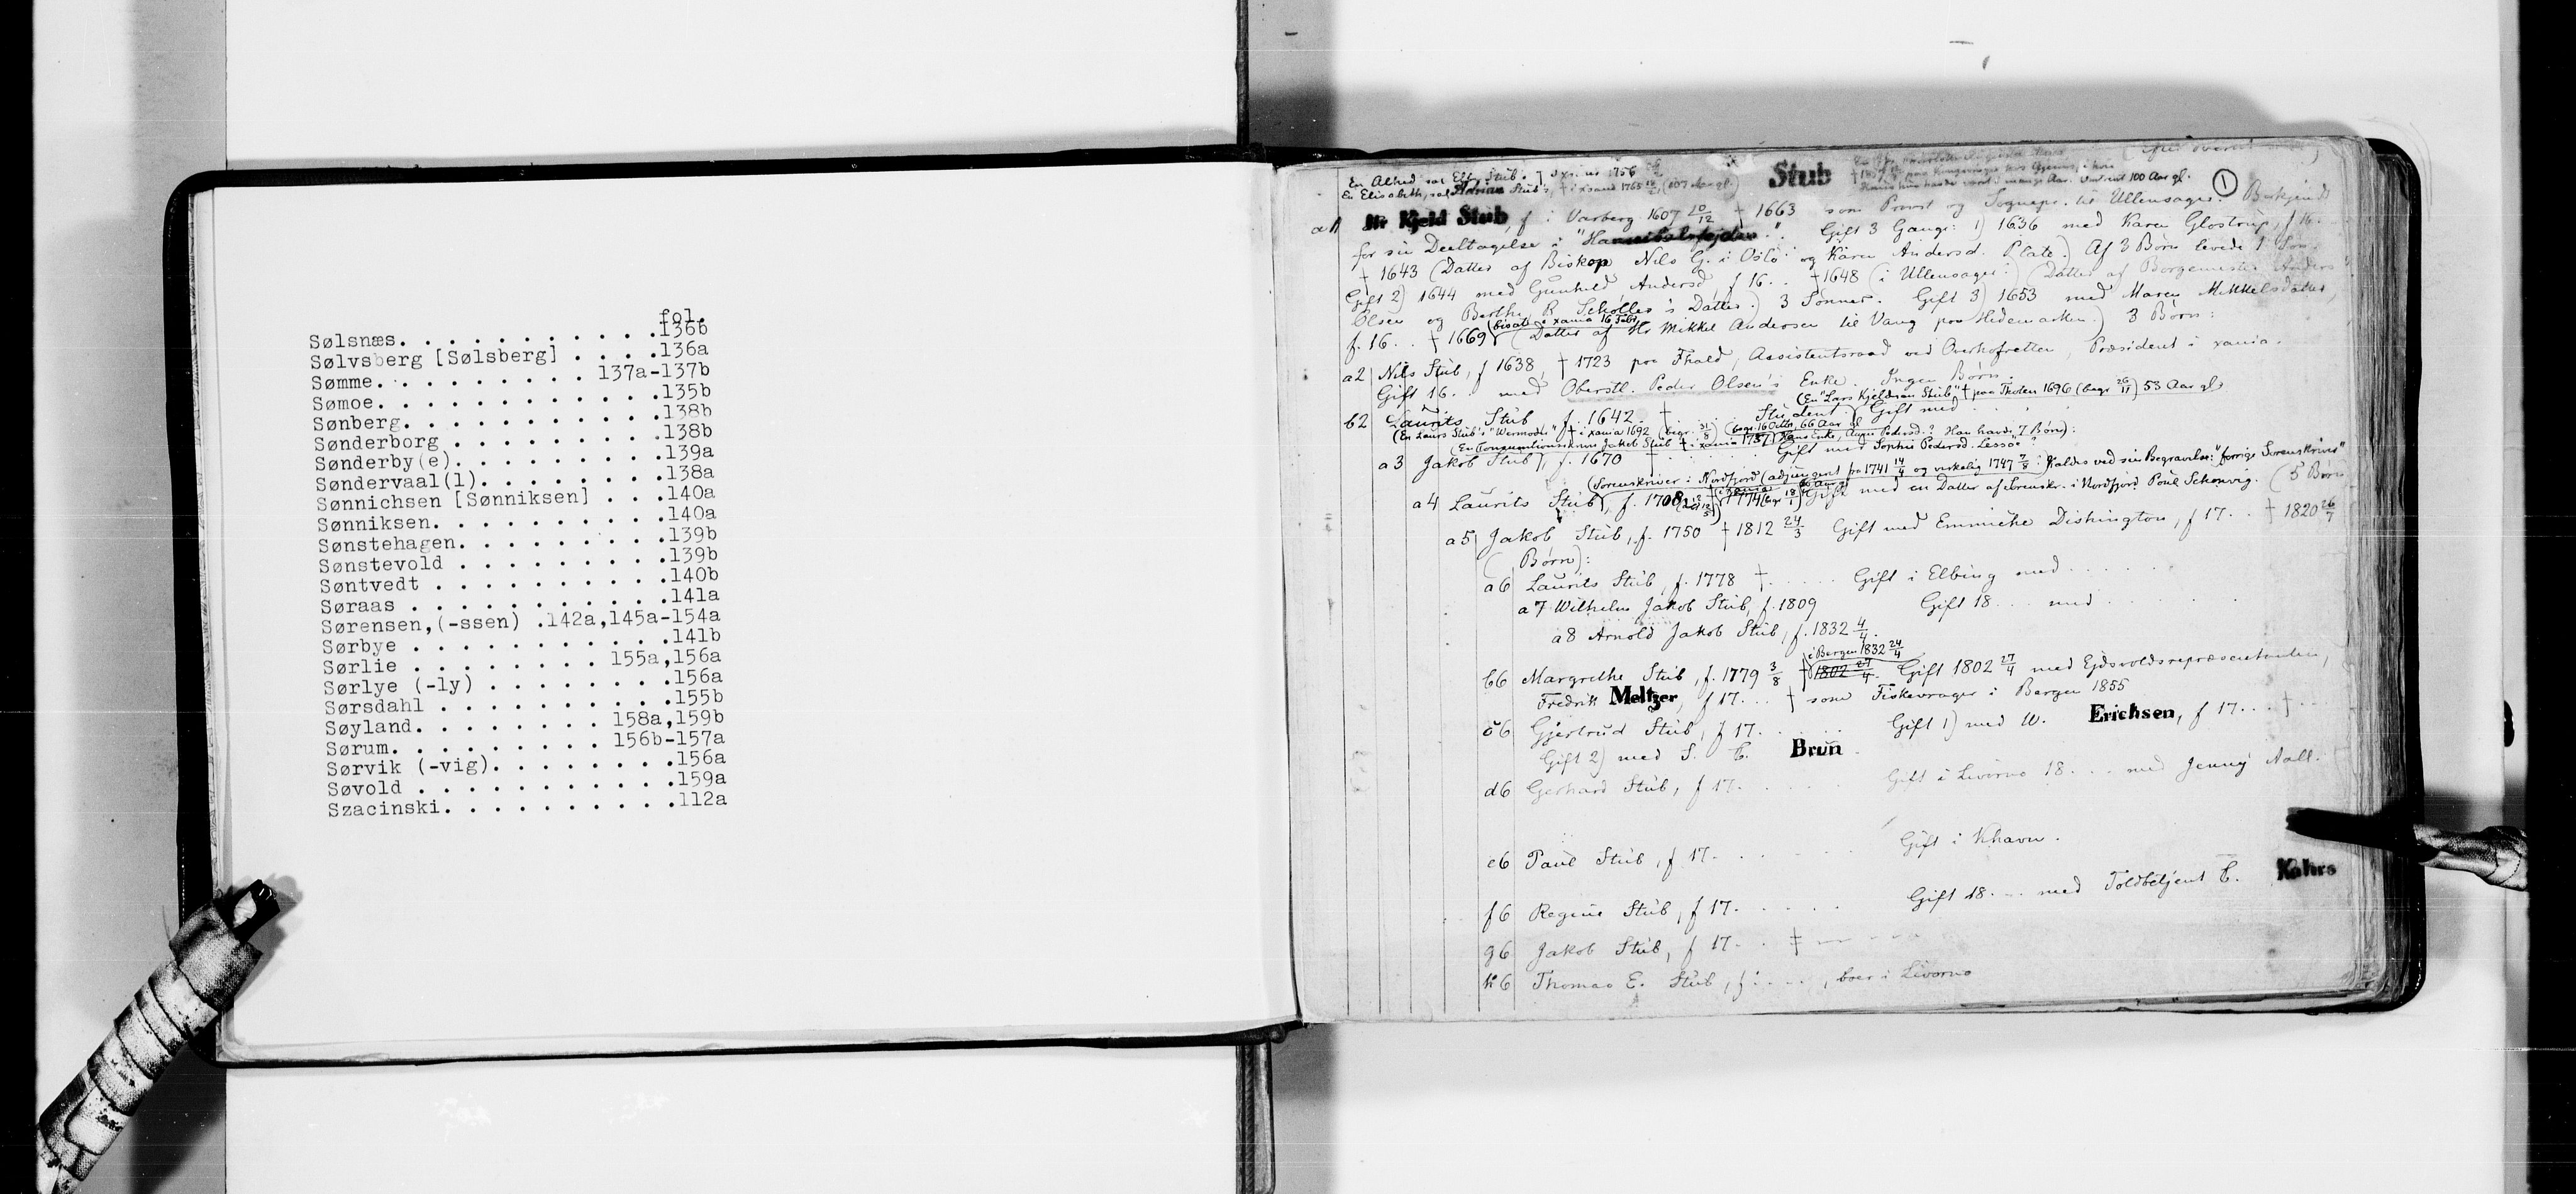 fol.
Sølsnæs. . . . . . . . . . . .136b
Sølvsberg [Sølsberg] . . . .136a
Sømme. . . . . . . . . 137a-137b
Sømoe. . . . . . . . . . . . .135b
Sønberg. . . . . . . . . . . .138b
Sønderborg . . . . . . . . . .138b
Sønderby(e). . . . . . . . . .139a
Søndervaal(l). . . . . . . . .138a
Sønnichsen [Sønniksen] . . .140a
Sønniksen. . . . . . . . . . .140a
Sønstehagen. . . . . . . . . .139b
Sønstevold . . . . . . . . . .139b
Søntvedt . . . . . . . . . . .140b
Søraas . . . . . . . . . . . .141a
Sørensen,(-ssen) .142a,145a-154a
Sørbye . . . . . . . . . . . .141b
Sørlie . . . . . . . . 155a,156a
Sørlye (-ly) . . . . . . . . .156a
Sørsdahl . . . . . . . . . . .155b
Søyland. . . . . . . . 158a,159b
Sørum. . . . . . . . . 156b-157a
Sørvik (-vig). . . . . . . . .156a
Søvold . . . . . . . . . . . .159a
Szacinski. . . . . . . . . . .112a
Stub
1
100 Aar gl.
a1 Hr Kjeld Stub, f i Varberg 1607 10/12 † 1663 som Provst og Sognepr. til Ullensager. Berkjendt
for sin Deeltagelse i "Hannibalsfejden." Gift 3 Gange: 1) 1636 med Karen Glostrup, f 16..
† 1643 (Datter af Biskop Nils G. i Oslo og Karen Andersd. Plate.) Af 3 Børn levede 1 Søn.
Gift 2) 1644 med Gunhild Andersd, f 16. . †1648 (i Ullensager) (Datter af Borgemester Anders
Olsen og Berthe R. Schøller's Datter.) 3 Sønner. Gift 3) 1653 med Maren Mikkelsdatter,
f. 16. . † 1669 (Datter af Hr Mikkel Andersen til Vang paa Hedemarken.) 3 Børn:
a2 Nils Stub, f 1638, † 1723 paa Fhald, Assistentsraad ved Overhofretten, Præsident i xania.
Gift 16. . med Oberstl. Peder Olsen's Enke. Ingen Børn.
(En "Lars Kjeldsen Stub" † paa Thoten 1696 (begr 26/11) 53 Aar gl.)
b2 Laurits Stub f. 1642. † Student. Gift med
a3 Jakob Stub, f. 1670 † Gift med Sophie Pedersd. Lessøe?
(Sorenskriver i Nordfjord (adjungeret fra 1741 14/4 og virkelig 1747 7/8: Kaldes ved sin Begravelse: "forrige Sorenskriver"
a4 Laurits Stub, f. 1708 Gift med en Datter af Sorenskr. i Nordfjord Poul Schonvig. (5 Børn
a5 Jakob Stub, f. 1750 † 1812 24/3 Gift med Emmiche Dishington, f 17. . † 1820 26/7
( Børn):
a6 Laurits Stub, f. 1778 † . . . . Gift i Elbing med . . . . .
a7 Wilhelm Jakob Stub, f. 1809 Gift 18 . . . med . . .
a8 Arnold Jakob Stub, f. 1832 4/4.
i Bergen 1832 24/4
b6 Margrethe Stub, f. 1779 3/8 † 1802 27/4. Gift 1802 27/4 med Ejdsvoldsrepræsentanten,
Fredrik Meltzer, f 17. . . † som Fiskevrager i Bergen 1855
c6 Gjertrud Stub, f 17. . . . . Gift 1) med W. Erichsen, f 17. . . † . . .
Gift 2) med S. C. Brun
d6 Gerhard Stub, f 17. . . . . Gift i Livorno 18 . . . med Jenny Nall.
e6 Paul Stub, f 17. . . . . Gift i Khavn.
f6 Regine Stub, f 17. . . . . Gift 18. . . med Toldbetjent C. Kahrs
g6 Jakob Stub, f 17. . †
h6 Thomas E. Stub, f . . . . , boer i Livorno